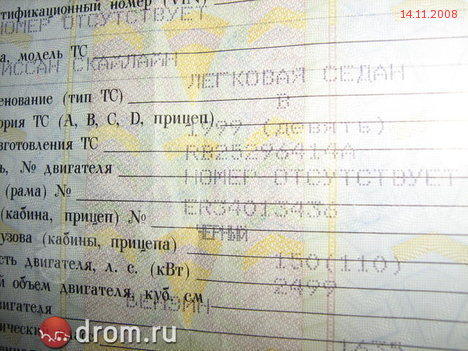 14.11.2008
тификационный номер (VIN)
НОМЕР ОТСУТСТВУЕТ
а, модель ТС
ИССАН СКАЙЛАЙН
ЛЕГКОВАЯ СЕДАН
енование (тип ТС)
B
ория ТС (A, B, C, D, прицеп)
1999 (девять)
зготовления ТС
RB25296414A
ь, № двигателя
НОМЕР ОТСУТСТВУЕТ
(рама) №
ER34013436
(кабина, прицеп) №
ЧЕРНЫЙ
узова (кабины, прицепа)
150(110)
сть двигателя, л. с. (кВт)
2499
й объем двигателя, куб. см
БЕНЗИН
вигателя
ическ
drom.ru